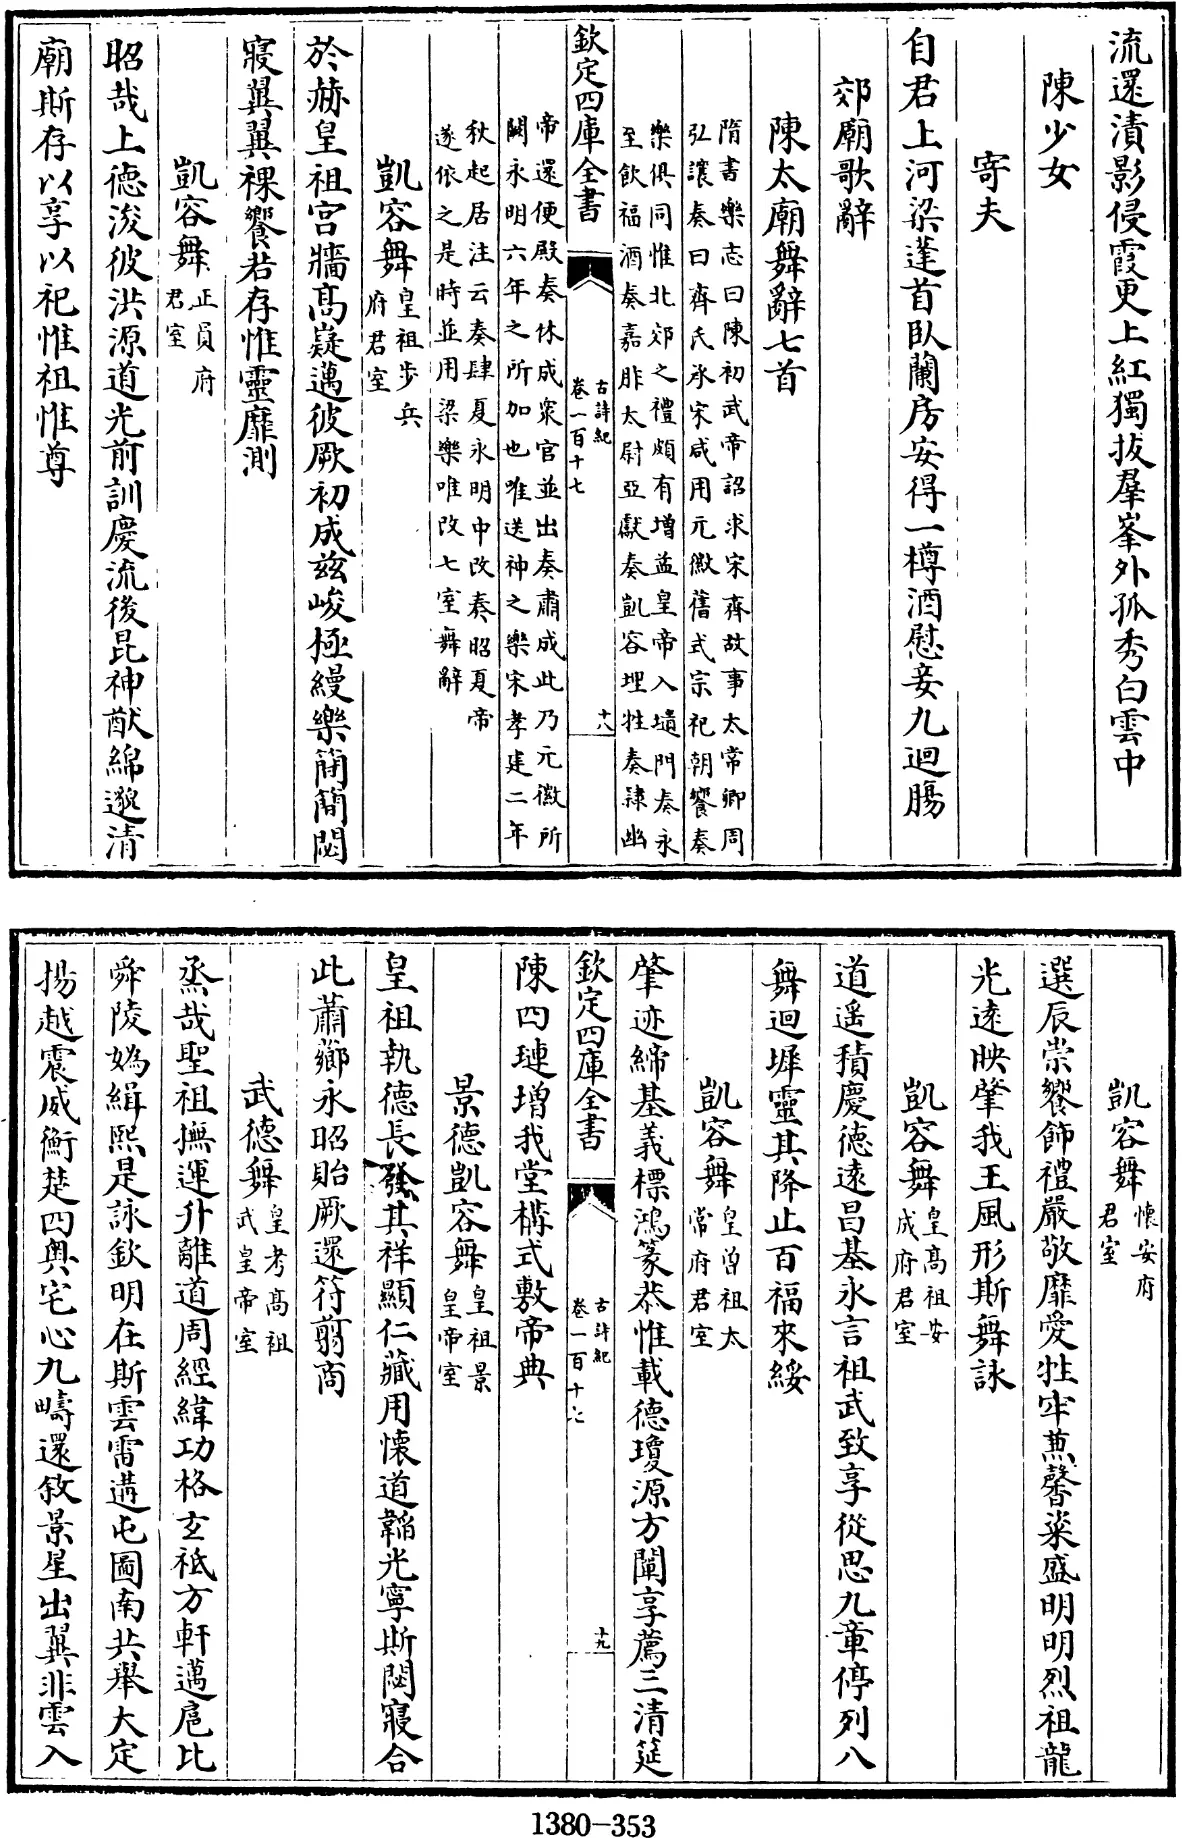 流還漬影侵霞更上紅獨拔羣峯外孤秀白雲中
陳少女
寄夫
自君上河梁蓬首臥蘭房安得一樽酒慰妾九迴腸
郊廟歌辭
陳太廟舞辭七首
隋書樂志曰陳初武帝詔求宋齊故事太常卿周
弘讓奏曰齊氏承宋咸用元徽舊式宗祀朝饗奏
樂俱同惟北郊之禮頗有增益皇帝入壝門奏永
至飲福酒奏嘉胙太尉亞獻奏凱容埋牲奏隸幽
欽定四庫全書
古詩紀
卷一百十七
十八
帝還便殿奏休成衆官並出奏肅成此乃元徽所
闕永明六年之所加也唯送神之樂宋孝建二年
秋起居注云奏肆夏永明中改奏昭夏帝
遂依之是時並用梁樂唯改七室舞辭
凱容舞皇祖步兵
府君室
於赫皇祖宮牆高嶷邁彼厥初成兹峻極縵樂簡簡閟
寢翼翼祼饗若存惟靈靡測
凱容舞正員府
君室
昭哉上德浚彼洪源道光前訓慶流後昆神猷綿邈清
廟斯存以享以祀惟祖惟尊
凱容舞懷安府
君室
選辰崇饗飾禮嚴敬靡愛牲牢兼馨粢盛明明烈祖龍
光遠映肇我王風形斯舞詠
凱容舞皇高祖安
成府君室
道遥積慶德遠昌基永言祖武致享從思九章停列八
舞迴墀靈其降止百福來綏
凱容舞皇曾祖太
常府君室
肇迹締基義標鴻篆恭惟載德瓊源方闡享薦三清筵
欽定四庫全書
古詩紀
卷一百十七
十九
陳四璉增我堂構式敷帝典
景德凱容舞皇祖景
皇帝室
皇祖執德長發其祥顯仁藏用懷道韜光寧斯閟寢合
此蕭薌永昭貽厥還符翦商
武德舞皇考高祖
武皇帝室
烝哉聖祖撫運升離道周經緯功格玄祗方軒邁扈比
舜陵嬀緝熙是詠欽明在斯雲雷遘屯圖南共舉大定
揚越震威衡楚四奥宅心九疇還敘景星出翼非雲入
1380-353